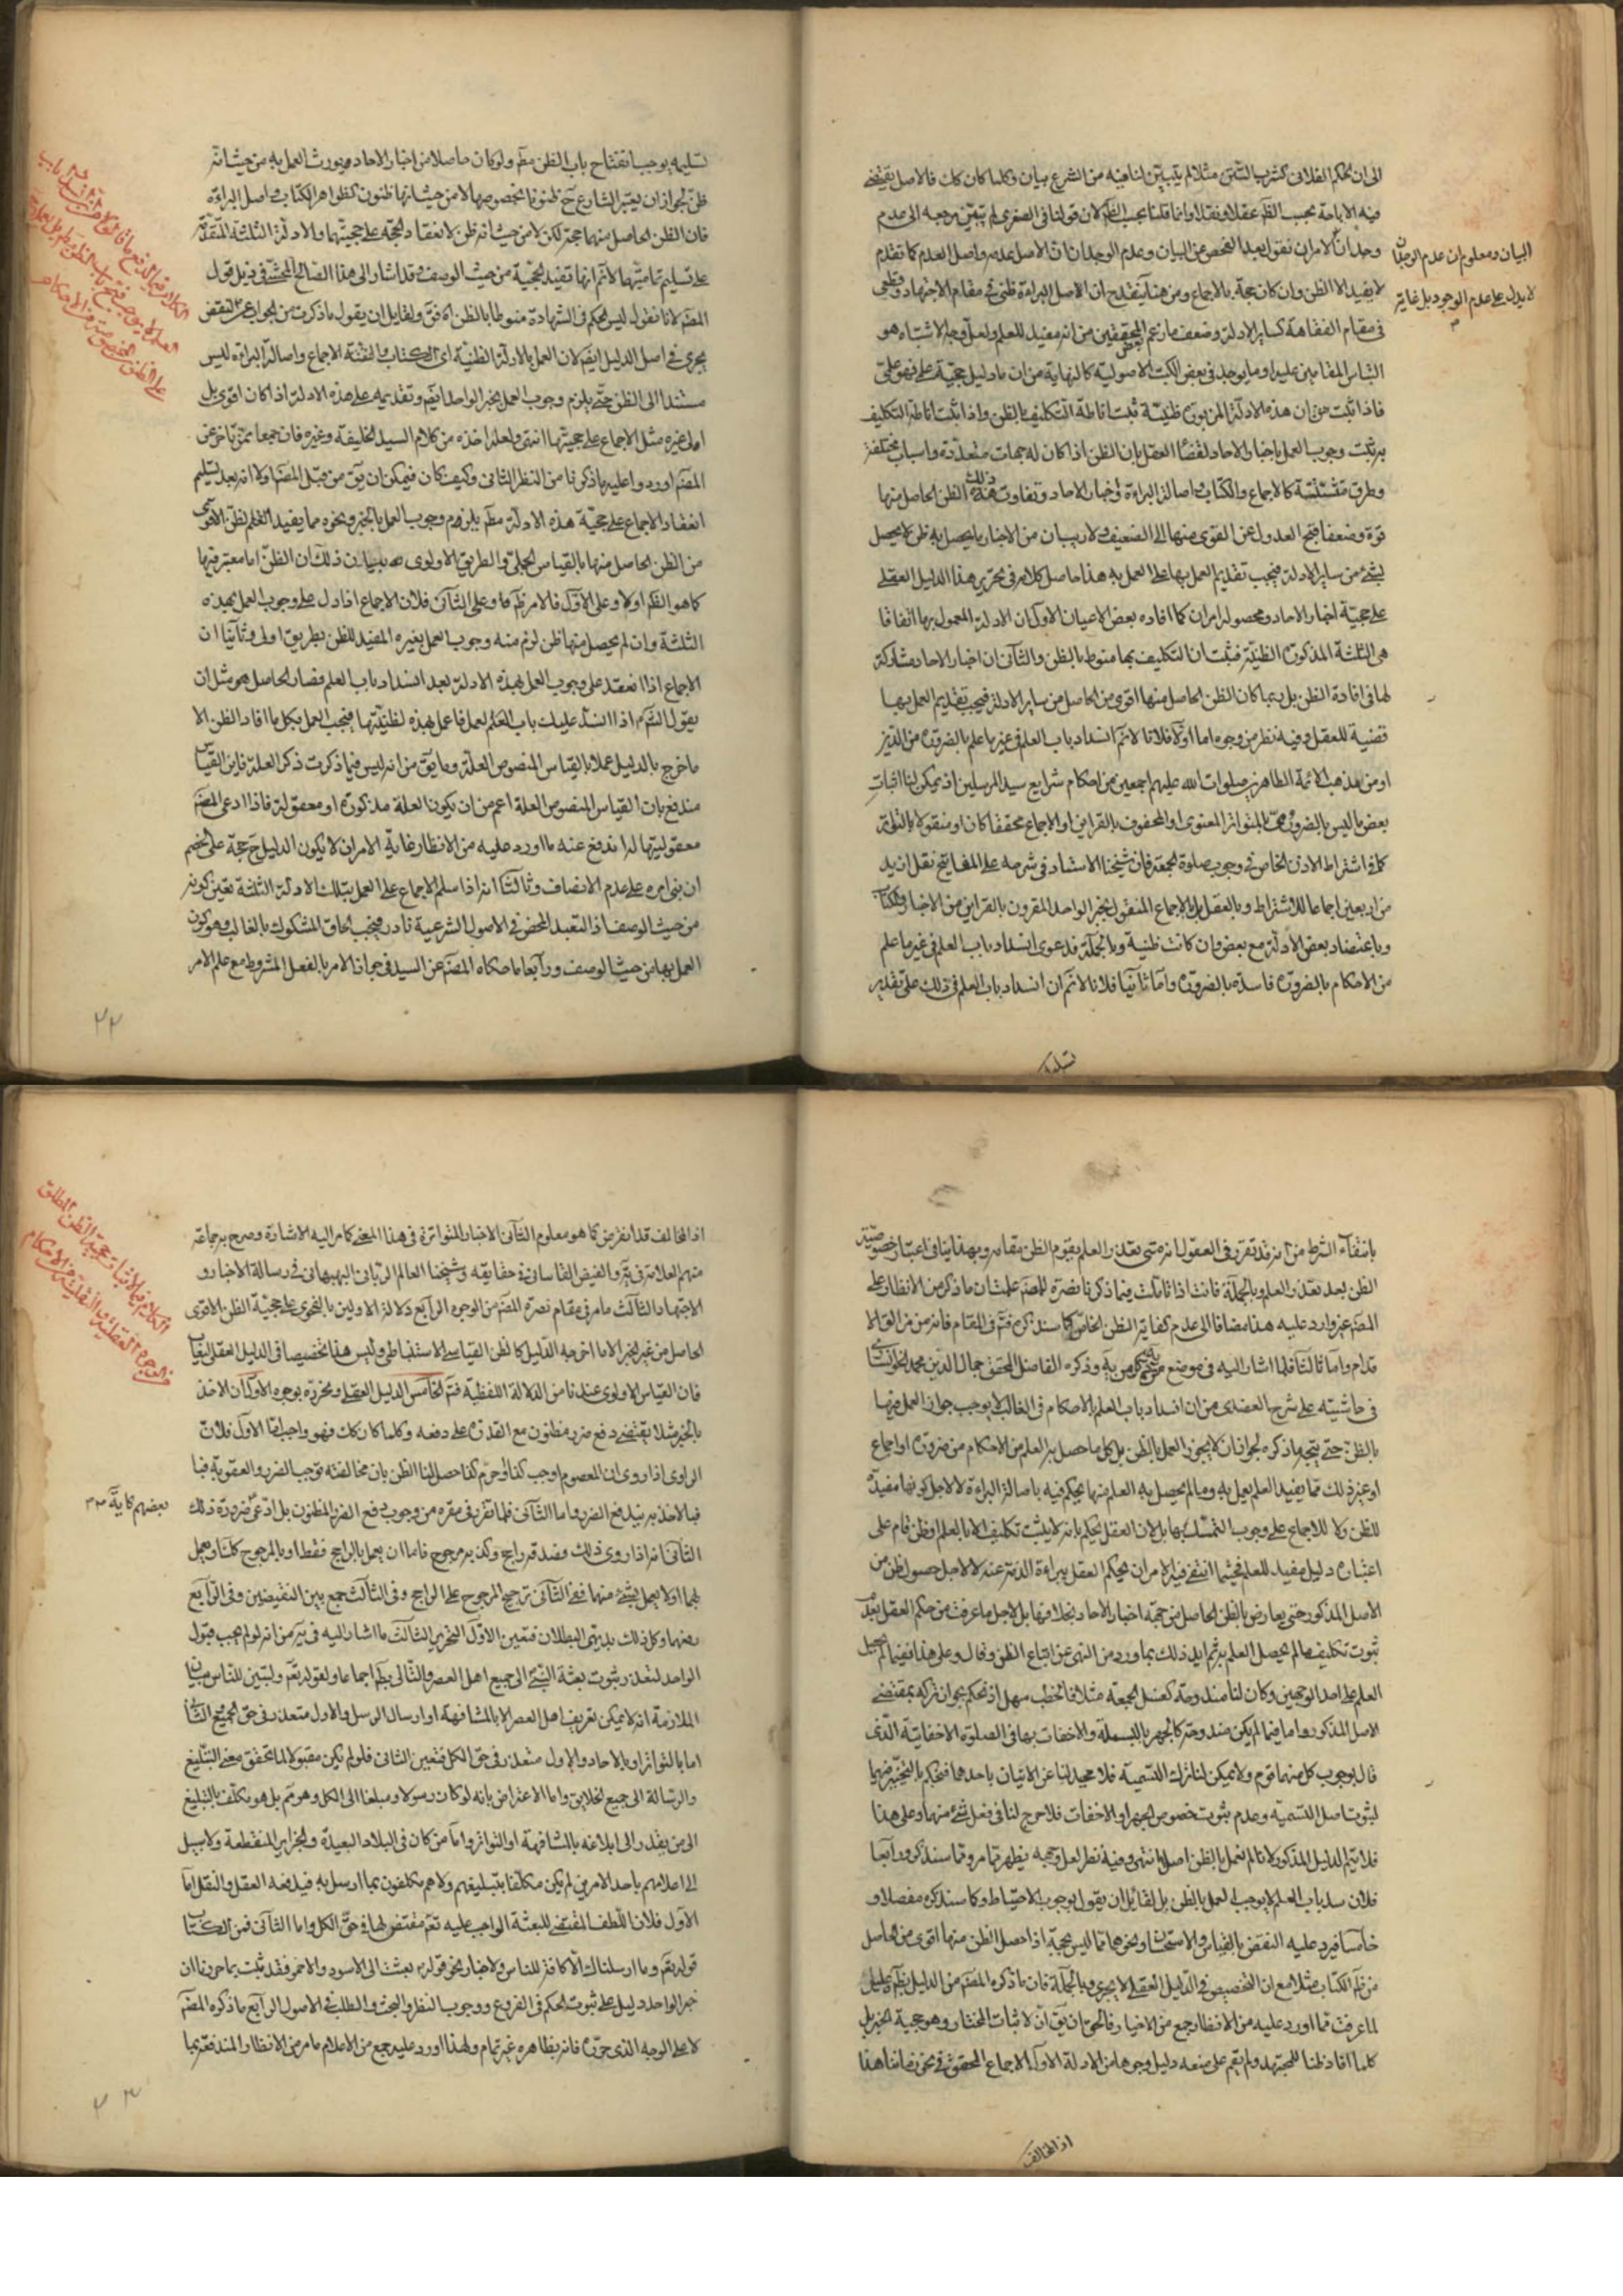 الى ان الحكم الفلانى كشرب التتن مثلا لم يتبين لنا فيه من الشرع بيان وكلما كان كك فالاصل يقتضى
فيه الاباحة بحسب الظم عقلا ونقلا وانما قلنا بحسب الظم لان قولنا فى الصغرى لم يتبين مرجعه الى عدم
وجدانا لامرانه نقول بعد الفحص عن البيان وعدم الوجدان ان الاصل عدمه واصل العدم كما تقدم
البيان ومعلوم ان عدم الوجدان
لا يدل على عدم الوجود بل غايته
لا يفيد الا الظن وان كان حجة بالاجماع ومن هنا ينقدح ان الاصل البراءة ظنى فى مقام الاجتهاد وقطعى
فى مقام الفقاهة كساير الادلة وضعف ما زعم بعض المحققين من انه مفيد للعلم ولعل وجه الاشتباه هو
التباس المقامين عليه او ما يوجد فى بعض الكتب الاصولية كالنهاية من ان ما دليل حجيته علمى فهو علمى
فاذا ثبت من ان هذه الادلة المزبورة ظنية ثبت اناطة التكليف بالظن واذا ثبت اناطة التكليف
به ثبت وجوب العمل باخبار الاحاد لقضاء العقل بان الظن اذا كان له جهات متعددة واسباب مختلفة
وطرق متشتتة كالاجماع والكتاب واصالة البراءة واخبار الاحاد وتفاوت ذلك الظن الحاصل منها
قوة وضعفا فقبح العدول عن القوى منها الى الضعيف ولا ريب ان من الاخبار ما يحصل به ظن لا يحصل
بشئ من ساير الادلة فيجب تقديم العمل بها على العمل به هذا حاصل كلامه فى تحرير هذا الدليل العقلى
على حجية اخبار الاحاد ومحصوله امران كما افاده بعض الاعيان الاول ان الادلة المعمول بها اتفاقا
هى الثلثة المذكورة الظنية فثبت ان التكليف بها منوط بالظن والثانى ان اخبار الاحاد مشاركة
لها فى افادة الظن بل ربما كان الظن الحاصل منها اقوى من الحاصل من ساير الادلة فيجب تقديم العمل بها
قضية للعقل وفيه نظر من وجوه اما اولا فلانا لا نم انسداد باب العلم فى غير ما علم بالضرورة من الدين
او من مذهب الائمة الطاهرين صلوات الله عليهم اجمعين من احكام شرايع سيد المرسلين اذ يمكن لنا اثبات
بعض ما ليس بالضرورى بالمتواتر المعنوى او المحفوف بالقراين او الاجماع محققا كان او منقولا بالتواتر
كما فى اشتراط الاذن الخاص فى وجوب صلوة الجمعة فان شيخنا الاستاد فى شرحه على المفاتيح نقل ازيد
من اربعين اجماعا للاشتراط وبالعقل وبالاجماع المنقول بخبر الواحد المقرون بالقراين من الاخبار والكتاب
وباعتضاد بعض الادلة مع بعض وان كانت ظنية وبالجملة فدعوى انسداد باب العلم فى غير ما علم
من الاحكام بالضرورة فاسدة بالضرورة واما ثانيا فلانا لا نم ان انسداد باب العلم فى ذلك على تقدير
تسليمه
تسليمه يوجب انفتاح باب الظن مطم ولو كان حاصلا من اخبار الاحاد ويورث العمل به من حيث انه
ظن لجواز ان يعتبر الشارع ح ظنونا بخصوصها لا من حيث انها ظنون كظواهر الكتاب واصل البراءة
فان الظن الحاصل منهما حجة لكن لا من حيث انه ظن لانعقاد الحجة على حجيتهما والادلة الثلثة المتقدمة
على تسليم تماميتها لا نم انها تفيد الحجية من حيث الوصف وقد اشار الى هذا الصالح المحشى فى ذيل قول
المصنم لانا نقول ليس الحكم فى الشهادة منوطا بالظن اه فق ولقايل ان يقول ما ذكرت من الجواب عن النقض
يجرى فى اصل الدليل ايضم لان العمل بالادلة الظنية اى الكتاب والسنة والاجماع واصالة البراءة ليس
مستندا الى الظن حتى يلزم وجوب العمل بخبر الواحد ايضم وتقديمه على هذه الادلة اذا كان اقوى بل
امر غيره مثل الاجماع على حجيتها انتهى ولعله اخذه من كلام السيد الخليفة وغيره فان جمعا ممن تاخر عن
المصنم اوردوا عليه ما ذكرنا من النظر الثانى وكيف كان فيمكن ان يق من قبل المصنم اولا انه بعد تسليم
انعقاد الاجماع على حجية هذه الادلة مطم يلزمهم وجوب العمل بالخبر ونحوه مما يفيد العلم لظن الاقوى
من الظن الحاصل منها بالقياس الجلى والطريق الاولوى بيان ذلك ان الظن اما معتبر فيها
كما هو الظم او لا وعلى الاول فالامر ظم وعلى الثانى فلان الاجماع اذا دل على وجوب العمل بهذه
الثلثة وان لم يحصل منها ظن لزم منه وجوب العمل بغيره المفيد للظن بطريق اولى وثانيا ان
الاجماع اذا انعقد على وجوب العمل بهذه الادلة بعد انسداد باب العلم فصار الحاصل هو مثل ان
يقول الشرم اذا انسد عليك باب العلم لعمل فاعمل بهذه لظنيتها فيجب العمل بكل ما افاد الظن الا
ما خرج بالدليل عملا بالقياس المنصوص العلة وما يق من انه ليس فيما ذكرت ذكر العلة فاين القياس
مندفع بان القياس المنصوص العلة اعم من ان يكون العلة مذكورة او معقولة فاذا ادعى المصنم
معقوليتها له اندفع عنه ما اورد عليه من الانظار غاية الامر ان لا يكون الدليل ح حجة على الخصم
ان بنى امره على عدم الانصاف وثالثا انه اذا سلم الاجماع على العمل بتلك الادلة الثلثة تعين كونه
من حيث الوصف اذ التعبد المحض فى الاصول الشرعية نادر فيجب الحاق المشكوك بالغالب وهو كون
العمل بها من حيث الوصف ورابعا ما حكاه المصنم عن السيد فى جواز الامر بالفعل المشروط مع علم الامر
٢٢
بانتفاء الشرط من انه قد تقرر فى العقول انه متى تعذر العلم يقوم الظن مقامه وبهذا ينافى اعتبار خصوصية
الظن بعد تعذر العلم وبالجملة فانت اذا تاملت فيما ذكرنا نصرة للمصنم علمت ان ما ذكر من الانظار على
المصنم غير وارد عليه هذا مضافا الى عدم كفاية الظن الخاص كما سنذكره فتم فى المقام فانه من مزال
الاقدام واما ثالثا فلما اشار اليه فى موضع وذكره الفاضل المحقق جمال الدين محمد الخوانسارى
فى حاشيته على شرح العضدى من ان انسداد باب العلم بالاحكام فى الغالب لا يوجب جواز العمل فيها
بالظن حتى يتجه ما ذكره لجواز ان لا يجوز العمل بالظن بل كل ما حصل به العلم من الاحكام من ضرورة او اجماع
او غير ذلك مما يفيد العلم يعمل به وما لم يحصل به العلم منها يحكم فيه باصالة البراءة لا لاجل كونها مفيدة
للظن ولا للاجماع على وجوب التمسك بها بل لان العقل يحكم بانه لا يثبت تكليف الا بالعلم او ظن قام على
اعتباره دليل مفيد للعلم فحيثما انتفى فيه الامران يحكم العقل ببراءة الذمة عنه لا لاجل حصول ظن من
الاصل المذكور حتى يعارض بالظن الحاصل من جهة اخبار الاحاد بخلافها بل لاجل ما عرفت من حكم العقل بعدم
ثبوت تكليف ما لم يحصل العلم به ثم ايد ذلك بما ورد من النهى عن اتباع الظن وقال وعلى هذا ففيما لم يحصل
العلم على احد الوجهين وكان لنا مندوحة كغسل الجمعة مثلا فالخطب سهل اذ نحكم بجواز تركه بمقتضى
الاصل المذكور واما فيما لم يكن مندوحة كالجهر بالبسملة والاخفات بها فى الصلوة الاخفاتية الذى
قال بوجوب كل منهما قوم ولا يمكن لنا ترك التسمية فلا محيد لنا عن الاتيان باحدهما فنحكم بالتخيير فيها
لثبوت اصل التسمية وعدم ثبوت خصوص الجهر او الاخفات فلا حرج لنا فى فعل شئ منهما وعلى هذا
فلا يتم الدليل المذكور لانا لم نعمل بالظن اصلا انتهى وفيه نظر لعل وجهه يظهر مما مر ومما سنذكر ورابعا
فلان سد باب العلم لا يوجب العمل بالظن بل لقائل ان يقول بوجوب الاحتياط وكما سنذكره مفصلا و
خامسا فيرد عليه النقض بالقياس والاستحسان ونحوهما مما ليس بحجة اذا حصل الظن منها اقوى من الحاصل
من ظم الكتاب مثلا مع ان التخصيص فى الدليل العقلى لا يجرى وبالجملة فان ما ذكره المصنم من الدليل بظم عليل
لما عرفت مما اورد عليه من الانظار جمع من الاخيار فالحق ان يق ان لاثبات المختار وهو حجية الخبر بل
كلما افاد ظنا للمجتهد ولم يقم على منعه دليل وجوها من الادلة الاول الاجماع المحقق فى نحو زماننا هذا
اذ المخالف
اذ المخالف قد انقرض كما هو معلوم الثانى الاخبار المتواترة فى هذا المعنى كما مر اليه الاشارة وصرح به جماعة
منهم العلامة فى يه والفيض القاسانى فى حقايقه وشيخنا العالم الربانى البهبهانى فى رسالة الاخبار و
الاجتهاد الثالث ما مر فى مقام نصرة المصنم من الوجوه الرابع دلالة الاولين بالفحوى على حجية الظن الاقوى
الحاصل من غير الخبر الا ما اخرجه الدليل كالظن القياسى الاستنباطى وليس هذا تخصيصا فى الدليل العقلى
فان القياس الاولوى عندنا من الدلالة اللفظية فتم الخامس الدليل العقلى ونحرره بوجوه الاول ان الاخذ
بالخبر مثلا يقتضى دفع ضرر مظنون مع القدرة على دفعه وكلما كان كك فهو واجب اما الاول فلان
الراوى اذا روى ان المعصوم اوجب كذا او حرم كذا حصل لنا الظن بان مخالفته توجب الضرر والعقوبة
فبالاخذ به يندفع الضرر واما الثانى فلما تقرر فى مقره من وجوب دفع الضرر المظنون بل ادعى ضرورة ذلك
بعضهم كاية
الثانى انه اذا روى ذلك وصدقه راجح وكذبه مرجوح فاما ان يعمل بالراجح فقط او بالمرجوح كك او يعمل
بهما او لا يعمل بشئ منهما ففى الثانى ترجيح المرجوح على الراجح وفى الثالث جمع بين النقيضين وفى الرابع
رفعهما وكل ذلك بديهى البطلان فتعين الاول التحرير الثالث ما اشار اليه فى يه من انه لو لم يجب قبول
الواحد لتعذر ثبوت بعثة النبى الى جميع اهل العصر والتالى بطم اجماعا ولقوله تعم ولتبين للناس بيان
الملازمة انه لا يمكن تعريف اهل العصر الا بالمشافهة او ارسال الرسل والاول متعذر فى حق الجميع والثانى
اما بالتواتر او بالاحاد والاول متعذر فى حق الكل فتعين الثانى فلو لم يكن مقبولا لما تحقق معنى التبليغ
والرسالة الى جميع الخلايق واما الاعتراض بانه لو كان رسولا ومبلغا الى الكل وهو مم بل هو مكلف بالتبليغ
الى من يقدر الى ابلاغه بالمشافهة او التواتر واما من كان فى البلاد البعيدة والجزاير المنقطعة ولا سبيل
الى اعلامهم باحد الامرين لم يكن مكلفا بتبليغهم ولا هم مكلفون بما ارسل به فيدفعه العقل والنقل اما
الاول فلان اللطف المقتضى للبعثة الواجب عليه تعم مقتض لها فى حق الكل واما الثانى فمن الكتاب
قوله تعم وما ارسلناك الا كافة للناس والاخبار نحو قوله بعثت الى الاسود والاحمر فقد ثبت بما حررنا ان
خبر الواحد دليل على ثبوت الحكم فى الفروع ووجوب النظر والبحث والطلب فى الاصول الرابع ما ذكره المصنم
لا على الوجه الذى حرره فانه بظاهره غير تمام ولهذا اورد عليه جمع من الاعلام ما مر من الانظار المندفعة بما
الكلام فيما لاثبات حجية الظن المطلق
من الوجوه العقلية والنقلية فى الاحكام